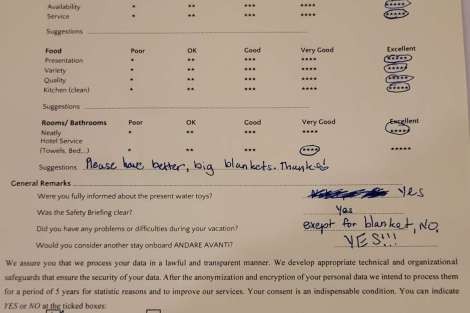 Availability * ** *** **** *****
Service * ** *** **** *****
Suggestions
Food Poor OK Good Very Good Excellent
Presentation * ** *** **** *****
Variety * ** *** **** *****
Quality * ** *** **** *****
Kitchen (clean) * ** *** **** *****
Suggestions
Rooms/ Bathrooms Poor OK Good Very Good Excellent
Neatly * ** *** **** *****
Hotel Service
(Towels, Bed,..) * ** *** **** *****
Suggestions Please have better, big blankets. Thanks!
General Remarks
Were you fully informed about the present water toys? Yes
Was the Safety Briefing clear? Yas
Did you have any problems or difficulties during your vacation? exept for blanket, NO.
Would you consider another stay onboard ANDARE AVANTI? YES!!!
We assure you that we process your data in a lawful and transparent manner. We develop appropriate technical and organizational
safeguards that ensure the security of your data. After the anonymization and encryption of your personal data we intend to process them
for a period of 5 years for statistic reasons and to improve our services. Your consent is an indispensable condition. You can indicate
YES or NO at the ticked boxes.